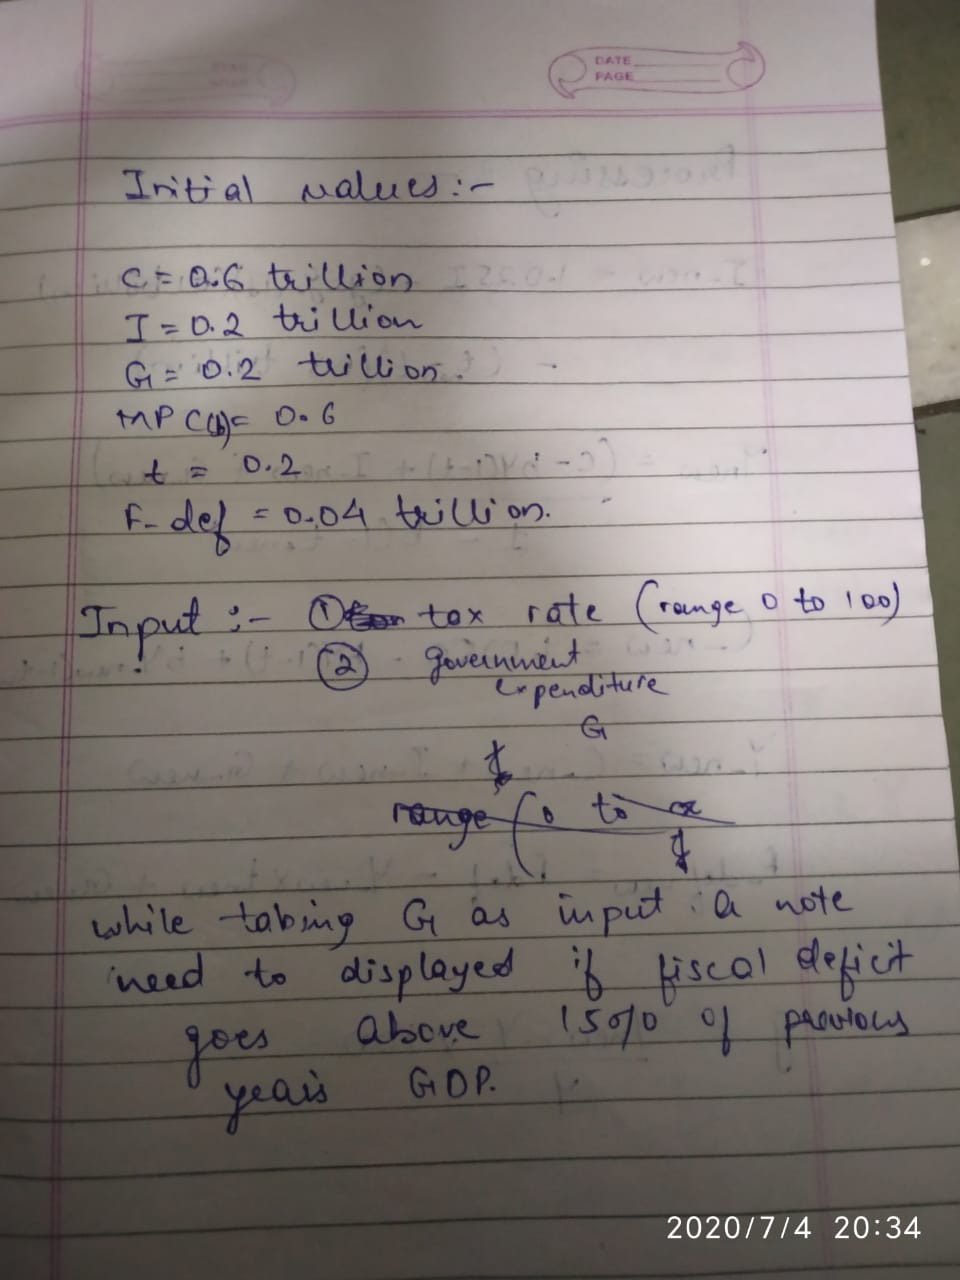 DATE
PAGE
Initial values:-
C = 0.6 trillion
I = 0.2 trillion
G = 0.2 trillion.
MPC(b) = 0.6
t = 0.2
F-def = 0.04 trillion.
Input :- ① tax rate (range 0 to 100)
② government
expenditure
G
range (0 to x
while taking G as input a note
need to displayed if fiscal deficit
goes above 15% of previous
year's GDP.
2020/7/4 20:34